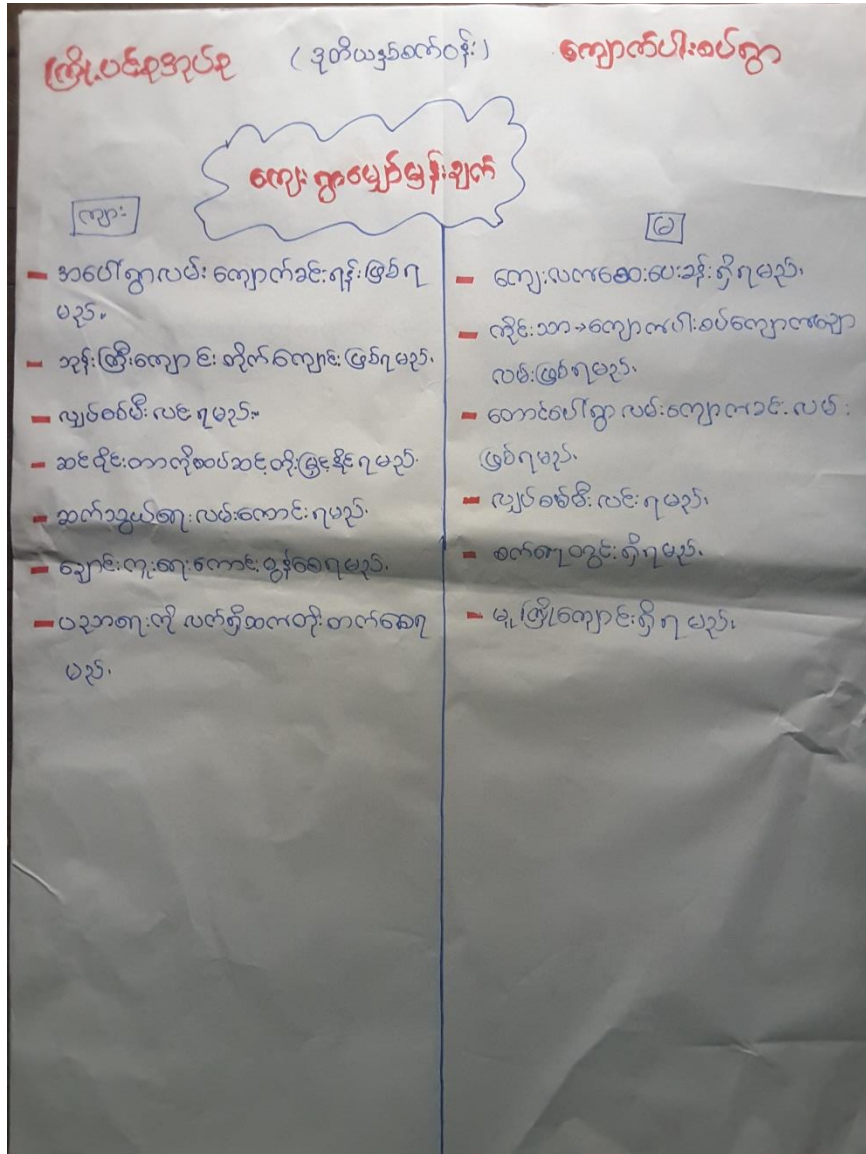 ကြို့ပင်စုအုပ်စု (ဒုတိယနှစ်စက်ဝန်း) ကျောက်ပါးစပ်ရွာ
ကျေးရွာမျှော်မှန်းချက်
ကျား
- အပေါ်ရွာလမ်းကျောက်ခင်းရန်းဖြစ်ရ
မည်။
- ဘုန်းကြီးကျောင်းတိုက်ကျောင်းဖြစ်ရမည်။
- လျှပ်စစ်မီးလင်းရမည်။
- ဆင်ပိုင်းတာကိုထပ်ဆင့်တိုးမြှင့်နိုင်ရမည်။
- ဆက်သွယ်ရေးလမ်းကောင်းရမည်။
- ချောင်းကူးရေးကောင်းမွန်စေရမည်။
- ပညာရေးကိုလက်ရှိထက်တိုးတက်စေရ
မည်။
မ
- ကျေးလက်ဆေးပေးခန်းရှိရမည်။
- ကိုင်းသာ→ကျောက်ပါးစပ်ကျောက်ချော
လမ်းဖြစ်ရမည်။
- တောင်ပေါ်ရွာလမ်းကျောက်ခင်းလမ်း
ဖြစ်ရမည်။
- လျှပ်စစ်မီးလင်းရမည်။
- စက်ရေတွင်းရှိရမည်။
- မူကြိုကျောင်းရှိရမည်။